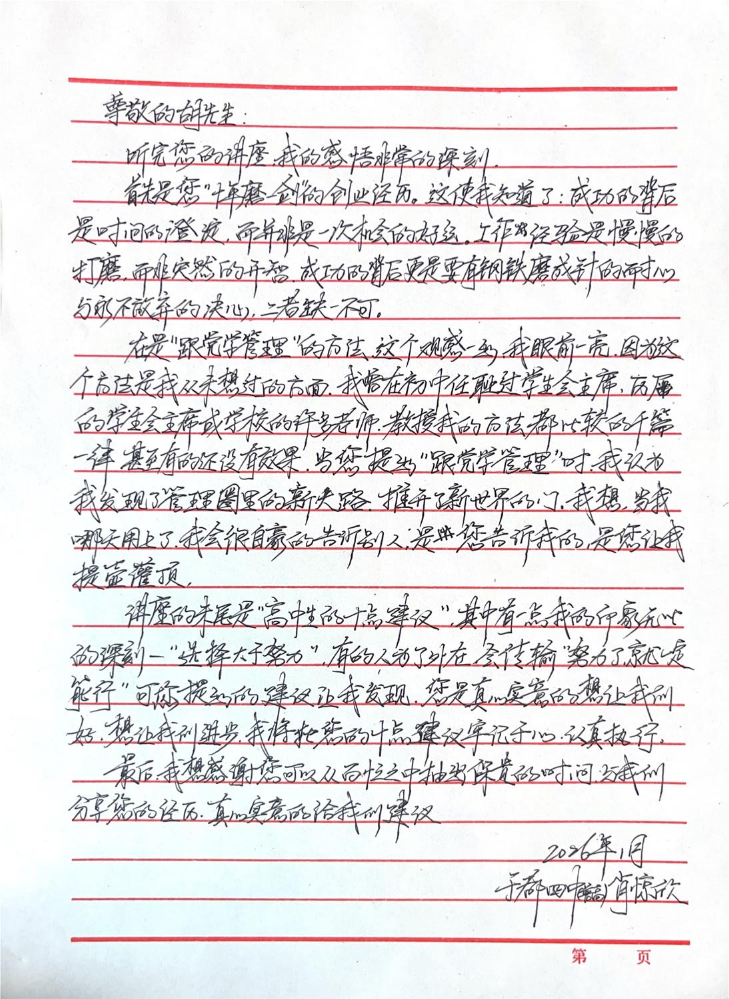 尊敬的胡先生:
听完您的讲座,我的感悟非常的深刻.
首先是您"十年磨一剑"的创业经历。这使我知道了:成功的背后
是时间的澄淀,而并非是一次机会的好运。工作经验是慢慢的
打磨,而非突然的开智,成功的背后更是要有钢铁磨成针的耐心
与永不放弃的决心,二者缺一不可。
在是"跟党学管理"的方法,这个观感一出,我眼前一亮,因为这
个方法是我从未想过的方面,我曾在初中任职过学生会主席,历届
的学生会主席或学校的许多老师,教授我的方法都比较的千篇
一律,甚至有的还没有效果,当您提出"跟党学管理"时,我认为
我发现了管理圈里的新大路,推开了新世界的门,我想,当我
哪天用上了,我会很自豪的告诉别人,是您告诉我的,是您让我
提壶灌顶,
讲座的末尾是"高中生的十点建议",其中有一点我的印象无比
的深刻—"选择大于努力",有的人为了外在,会传输"努力了就一定
能行"可您提出的建议让我发现,您是真心实意的想让我们
好,想让我们进步,我将把您的十点建议牢记于心,认真执行,
最后,我想感谢您可以从百忙之中抽出保贵的时间,与我们
分享您的经历,真心实意的给我们建议
2026年1月
于都四中 肖惊欣
第 页